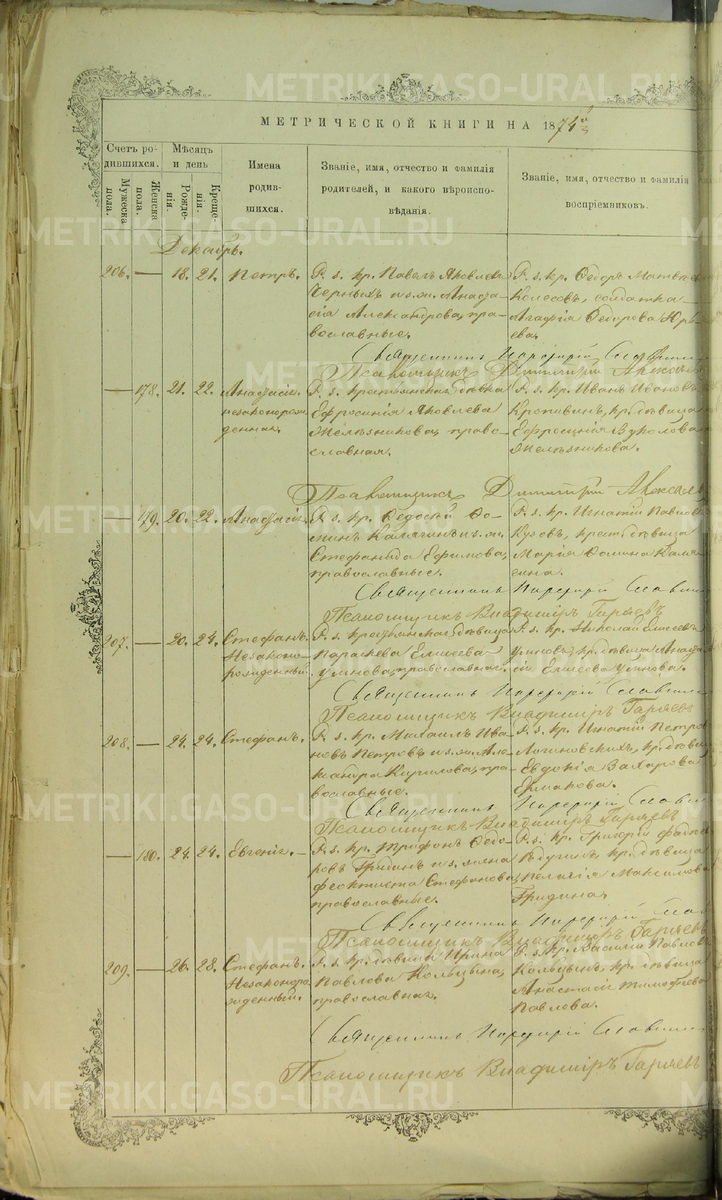 МЕТРИЧЕСКОЙ КНИГИ НА 1874
Счетъ ро-
дившихся.
Мужеска
пола.
Женска
пола.
Мѣсяцъ
и день
Рожде-
нія.
Креще-
нія.
Имена
родив-
шихся.
Званіе, имя, отчество и фамилія
родителей, и какого вѣроиспо-
вѣданія.
Званіе, имя, отчество и фамилія
воспріемниковъ.
Декабрь.
206. — 18. 21. Петръ.
Р. з. кр. Павелъ Яковлевъ
Черныхъ и з. ж. Анаста-
сія Александрова, пра-
вославные.
Р. з. кр. Ѳедоръ
Колесовъ, солдатка
Агафія Ѳедорова
Священникъ
Псаломщикъ Димитрій
— 178. 21. 22. Анастасія
незаконорож-
денная.
Р. з. крестьянская дѣвка
Ефросинія Яковлева
Желѣзникова, право-
славная.
Р. з. кр. Иванъ Ивановъ
кр. дѣвица
Ефросинія
Желѣзникова.
Псаломщикъ Димитрій
— 179. 20. 22. Анастасія
Р. з. кр. Ѳедосѣй Ѳо-
минъ Калягинъ и з. ж.
Стефанида Ефимова,
православные.
Р. з. кр. Игнатій Павловъ
крест. дѣвица
Марія Ѳомина Каля-
гина.
Священникъ
Псаломщикъ Владиміръ Гаряевъ
207. — 20. 24. Стефанъ.
Незаконо-
рожденный.
Р. з. крестьянская дѣвица
Параскева Елисеева
Умнова, православная.
Р. з. кр. Николай Елисеевъ
Умновъ, кр. дѣвица Анаста-
сія Елисеева Умнова.
Священникъ
Псаломщикъ Владиміръ Гаряевъ
208. — 24. 24. Стефанъ.
Р. з. кр. Михаилъ Ива-
новъ Петровъ и з. ж. Але-
ксандра Кирилова, пра-
вославные.
Р. з. кр. Игнатій Петровъ
Логиновскихъ, кр. дѣвица
Евдокія Захарова
Ермакова.
Священникъ
Псаломщикъ Владиміръ Гаряевъ
— 180. 24. 24. Евгенія.
Р. з. кр. Трифонъ Ѳедо-
ровъ Гридинъ и з. жена
Феоктиста Стефанова,
православные.
Р. з. кр. Григорій
кр. дѣвица
Пелагія Максимова
Гридина.
Священникъ
Псаломщикъ Владиміръ Гаряевъ
209. — 26. 28. Стефанъ.
Незаконоро-
жденный.
Р. з. кр. дѣвица Ирина
Павлова Кольцына,
православная.
Р. з. кр. Василій Павловъ
Кольцынъ, кр. дѣвица
Анастасія Тимофѣева
Павлова.
Священникъ
Псаломщикъ Владиміръ Гаряевъ
METRIKI.GASO-URAL.RU